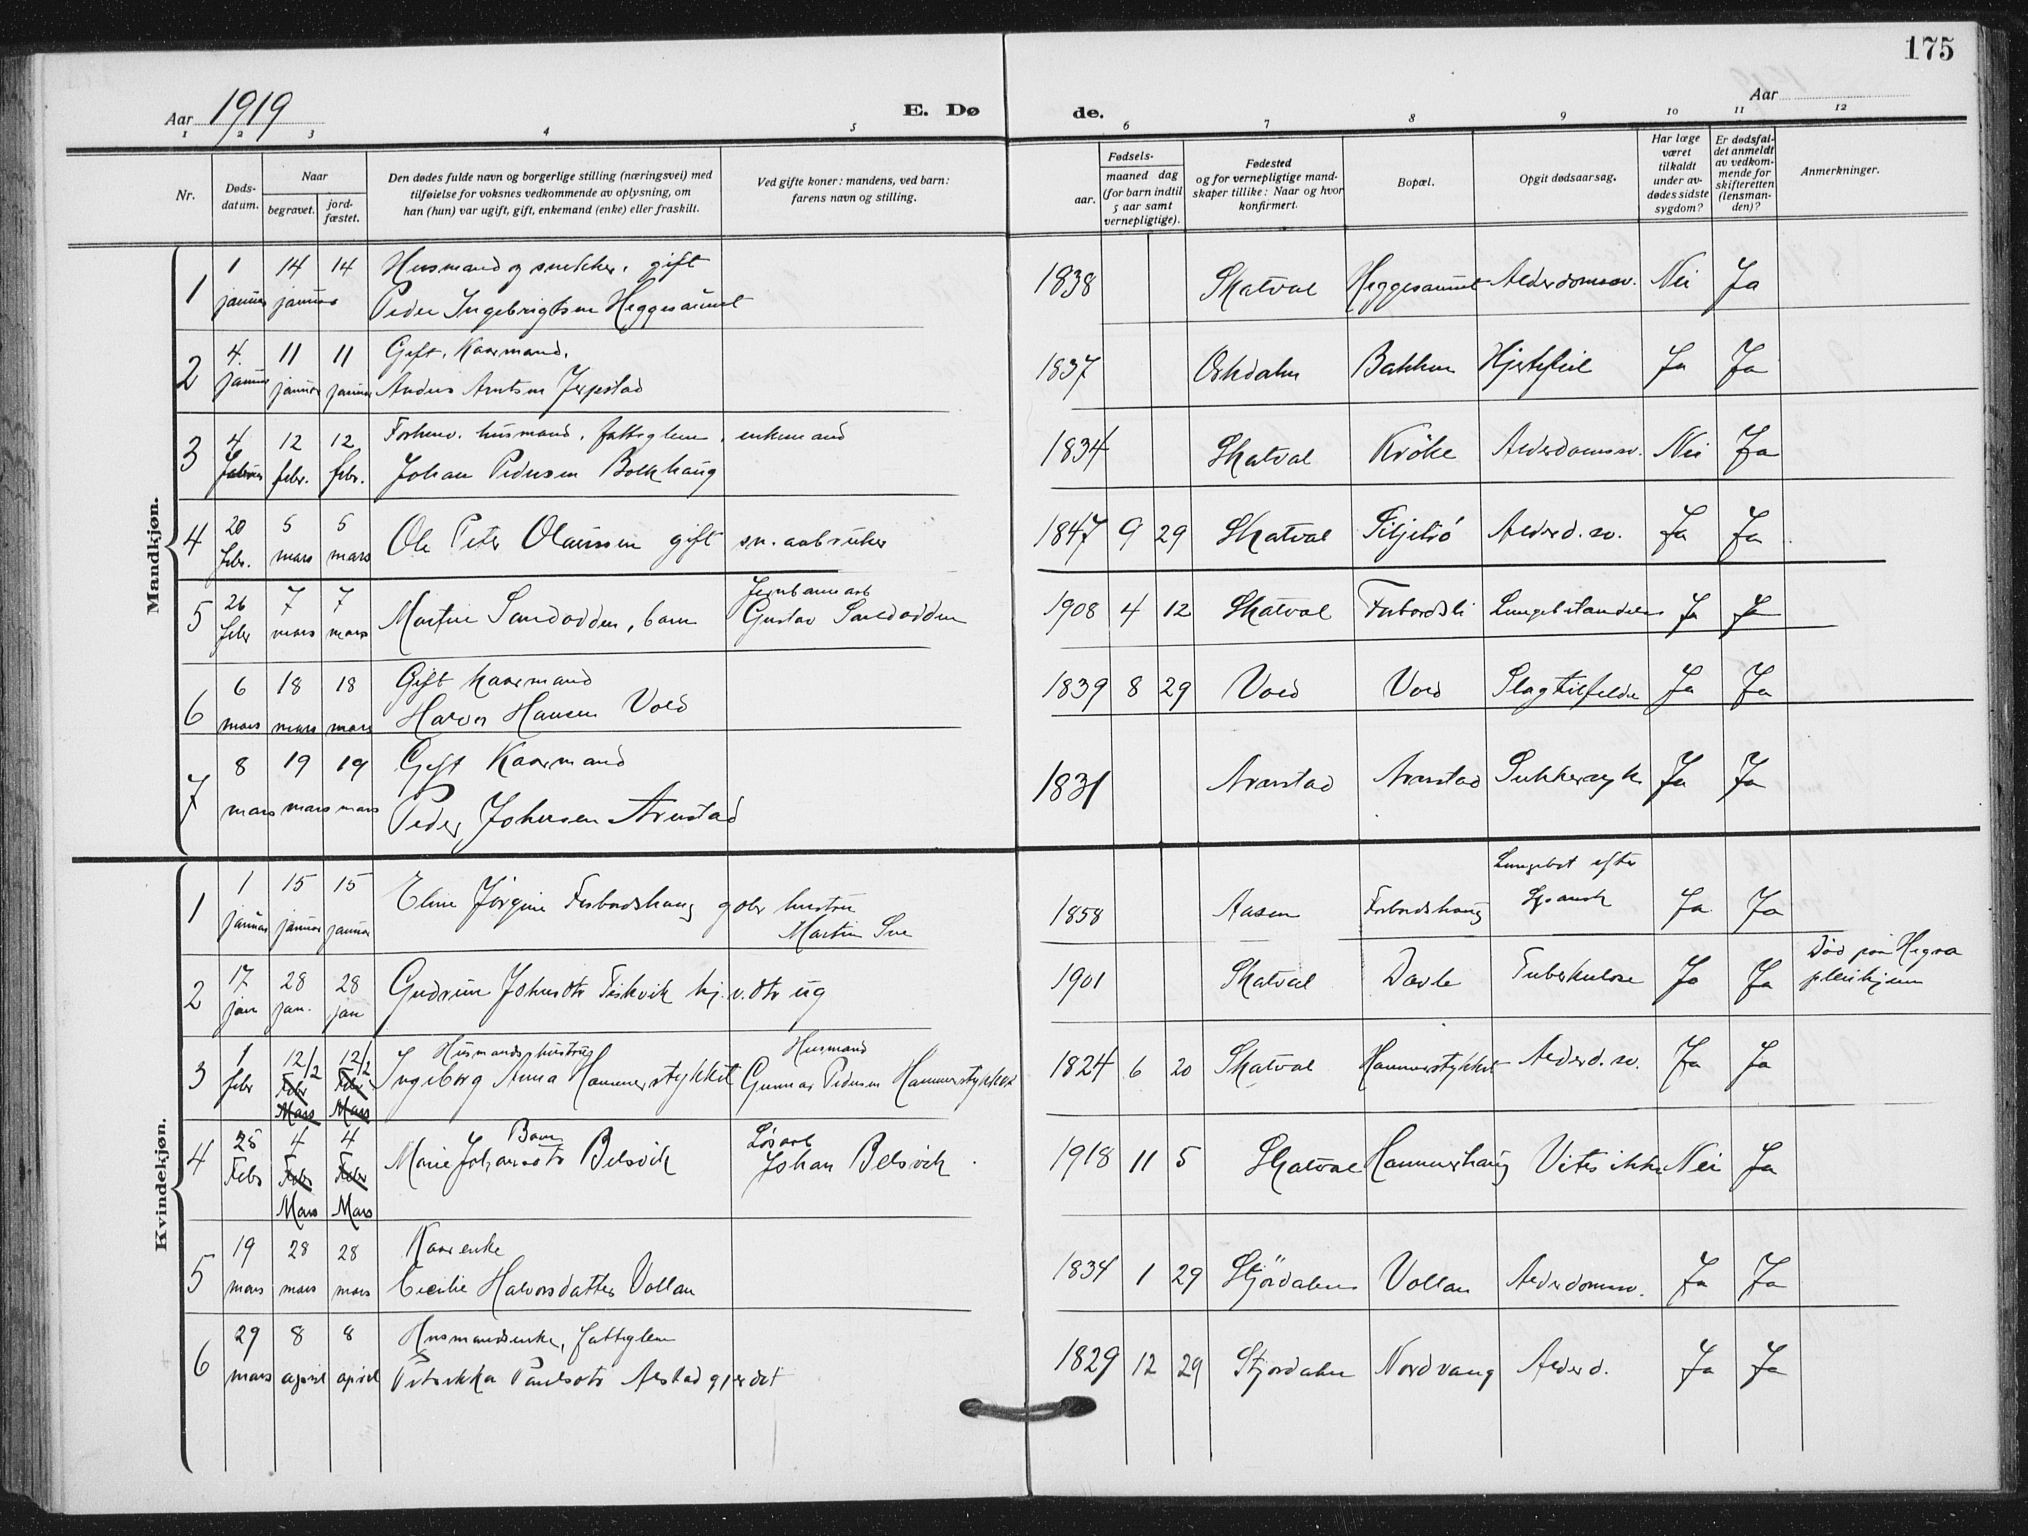 175
Aar 1919
E. Dø
de.
Aar
1 2 3 4 5 6 7 8 9 10 11 12
Nr.
Døds-
datum.
Naar
begravet.
jord-
fæstet.
Den dødes fulde navn og borgerlige stilling (næringsvei) med
tilføielse for voksnes vedkommende av oplysning, om
han (hun) var ugift, gift, enkemand (enke) eller fraskilt.
Ved gifte koner: mandens, ved barn:
farens navn og stilling.
Fødsels-
aar.
maaned dag
(for barn indtil
5 aar samt
vernepligtige).
Fødested
og for vernepligtige mand-
skaper tillike: Naar og hvor
konfirmert.
Bopæl.
Opgit dødsaarsag.
Har læge
været
tilkaldt
under av-
dødes sidste
sygdom?
Er dødsfal-
det anmeldt
av vedkom-
mende for
skifteretten
(lensman-
den)?
Anmerkninger.
Mandkjøn.
1 14 14 Husmand og snekker. gift
1 januar januar Peder Ingebrigtsen Heggesaunet 1838 Skatval Heggesaunet Alderdomssv. Nei Ja
4. 11 11 Gift. Kaarmand.
2 januar januar januar Anders Arntsen Jerpstad 1837 Opdalen Bakken Hjertefeil Ja Ja
4 12 12 Forhenv. husmand. fattiglem. enkemand
3 febr. febr. Johan Pedersen Bolkhaug 1834 Skatval Krøke Alderdomssv. Nei Ja
20 5 5
4 febr. mars mars Ole Peter Olaussen gift sm. aabruker 1847 9 29 Skatval Alderd. sv. Ja Ja
26 7 7 Jernbanearb
5 febr mars mars Sandodden, barn Gustav Sandodden 1908 4 12 Skatval Forbordsli Ja Ja
6 18 18 Gift kaarmand
6 mars mars mars Hansen Vold 1839 8 29 Vold Vold Slagtilfelde Ja Ja
8 19 19 Gift Kaarmand
7 mars mars mars Peder Johnsen Arnstad 1831 Arnstad Arnstad Sukkersyk Ja Ja
Kvindekjøn.
1 15 15 Eline Jørgine Forbordshaug hustru
1 januar januar januar Martin 1858 Aasen Forbordshaug Lungebet efter Spansk Ja Ja
17 28 28 Gudrun Johnsdtr Fiskvik ug
2 jan jan. jan 1901 Skatval Tuberkulose Ja Ja Død paa Hegra pleiehjem
1 12/2 12/2 Husmandshustru Husmand
3 febr Febr Febr Mars Mars Ingeborg Anna Hammerstykket Gunnar Pedersen Hammerstykket 1824 6 20 Skatval Hammerstykket Alderd. sv. Ja Ja
25 4 4 Barn Løsarb
4 Febr Febr Febr Mars Mars Marie Johansdtr Belsvik Johan Belsvik. 1918 11 5 Skatval Hammerhaug Vites ikke Nei Ja
19 28 28 Kaarenke
5 mars mars mars Cecilie Halvorsdatter Vollan 1834 1 29 Stjørdalen Vollan Alderdomssv. Ja Ja
29 8 8 Husmandsenke, fattiglem
6 mars april april Petrikka Paulsdtr Alstadgjerdet 1829 12 29 Stjørdalen Nordvang Alderd. Ja Ja